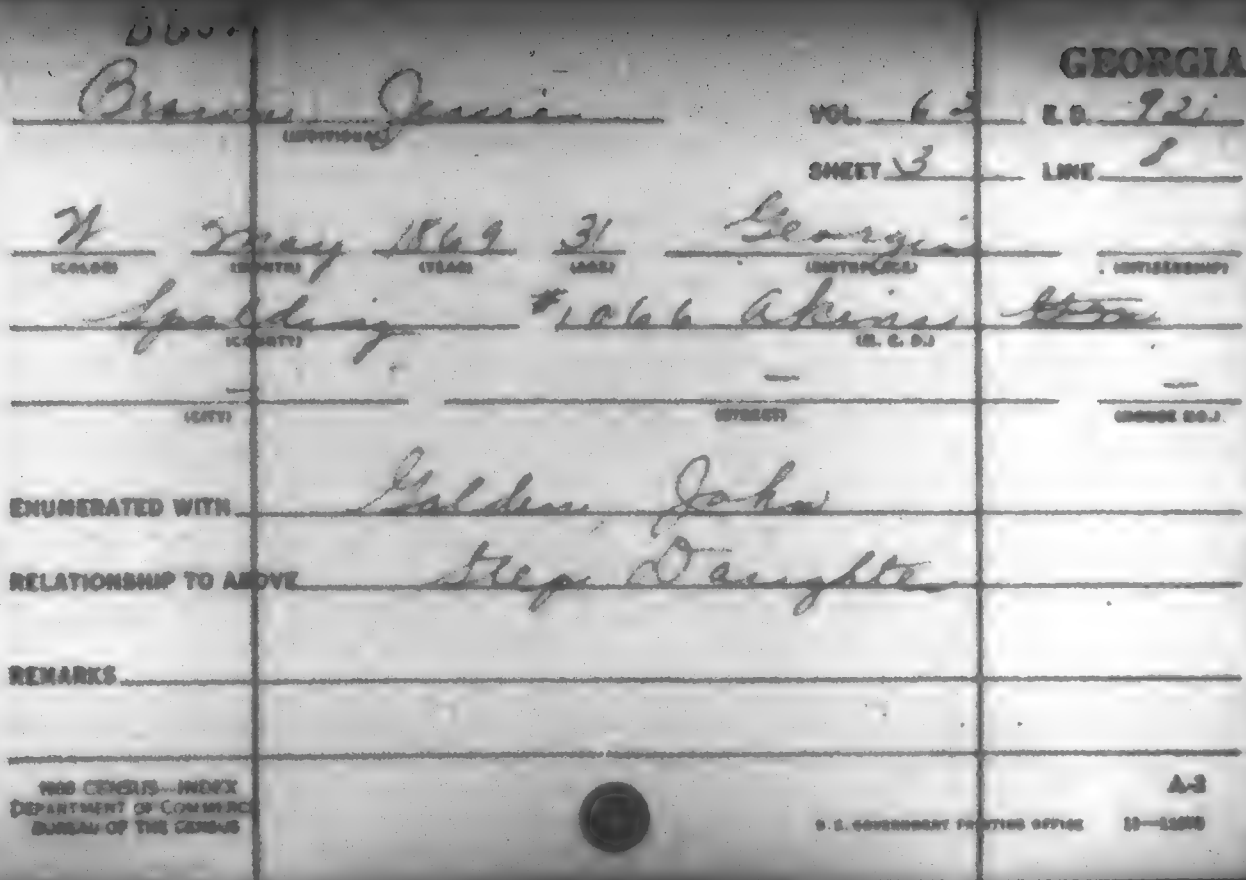 B600
GEORGIA
Brown Jessie
(INDIVIDUAL)
VOL. 63 E. D. 92
SHEET 3 LINE 8
W May 1869 31 Georgia
(COLOR) (MONTH) (YEAR) (AGE) (BIRTHPLACE) (CITIZENSHIP)
Spalding #1066 Akins
(COUNTY) (M. C. D.)
— — —
(CITY) (STREET) (HOUSE NO.)
ENUMERATED WITH Golden, John
RELATIONSHIP TO ABOVE Step Daughter
REMARKS
1900 CENSUS—INDEX
DEPARTMENT OF COMMERCE
BUREAU OF THE CENSUS
A-3
U.S. GOVERNMENT PRINTING OFFICE